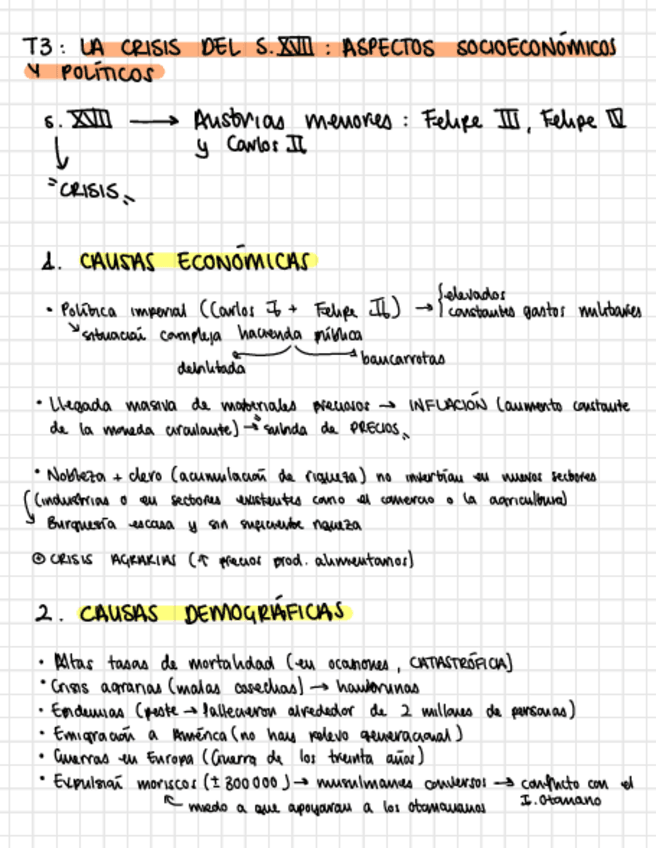 T3: LA CRISIS DEL S.XVII: ASPECTOS SOCIOECONÓMICOS
Y POLÍTICOS
s. XVII → Austrias menores: Felipe III, Felipe IV
y Carlos II
↓
"CRISIS"
1. CAUSAS ECONÓMICAS
• Política imperial (Carlos I + Felipe II) → { elevados
constantes gastos militares
↘ situación compleja hacienda pública
debilitada bancarrotas
• Llegada masiva de materiales preciosos → INFLACIÓN (aumento constante
de la moneda circulante) → subida de PRECIOS
• Nobleza + clero (acumulación de riqueza) no invertían en nuevos sectores
(industrias o en sectores existentes como el comercio o la agricultura)
↳ Burguesía escasa y sin suficiente riqueza
⊕ CRISIS AGRARIAS (↑ precios prod. alimentarios)
2. CAUSAS DEMOGRÁFICAS
• Altas tasas de mortalidad (en ocasiones, CATASTRÓFICA)
• Crisis agrarias (malas cosechas) → hambrunas
• Endemias (peste → fallecieron alrededor de 2 millones de personas)
• Emigración a América (no hay relevo generacional)
• Guerras en Europa (Guerra de los treinta años)
• Expulsión moriscos (± 300 000) → musulmanes conversos → conflicto con el
I. Otomano
↖ miedo a que apoyaran a los otomanos